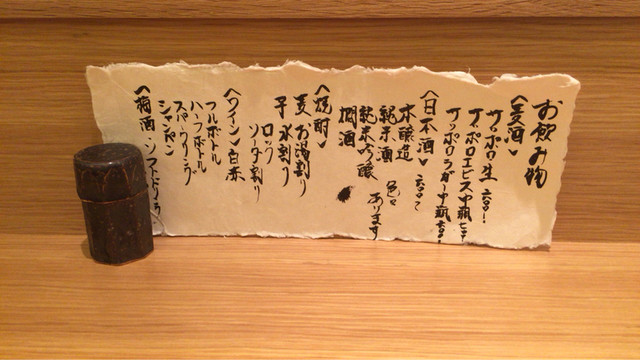 お飲み物
〈麦酒〉
サッポロ生 六〇〇!
サッポロエビス中瓶
サッポロラガー中瓶
〈日本酒〉 六〇〇〜
本醸造
純米酒 色々
純米吟醸 あります
燗酒
〈焼酎〉
麦 お湯割り
芋 水割り
ロック
ソーダ割り
〈ワイン〉白赤
フルボトル
ハーフボトル
スパークリング
シャンパン
〈梅酒・ソフトドリンク〉